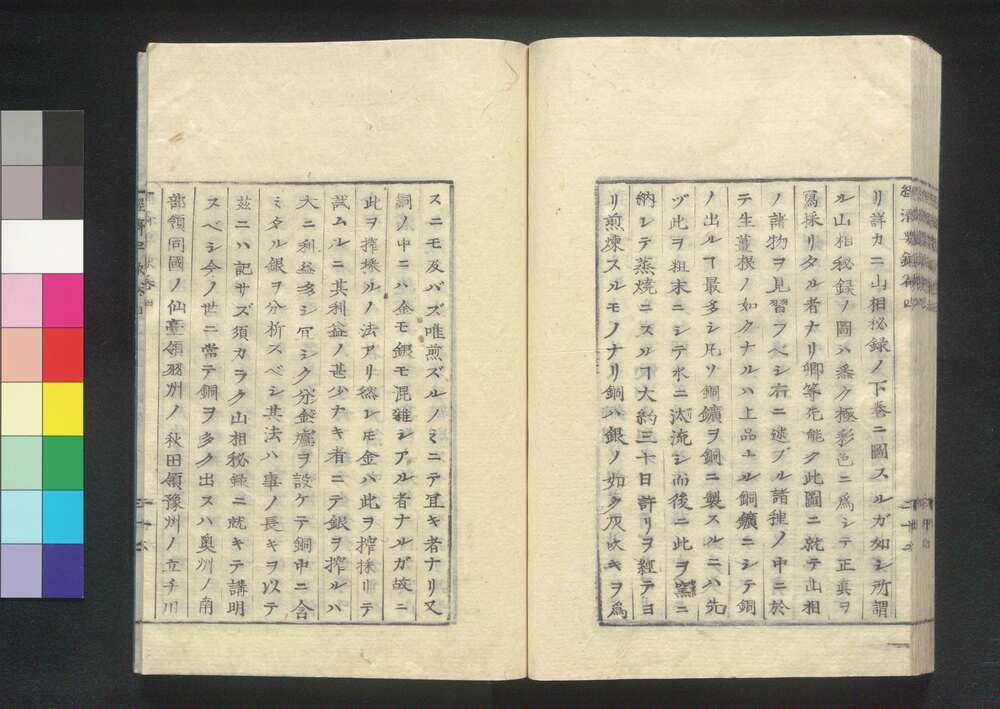 リ詳カニ山相秘録ノ下巻ニ圖スルガ如シ所謂
ル山相秘録ノ圖ハ悉ク極彩色ニ爲シテ正眞ヲ
寫採リタル者ナリ卿等先能ク此圖ニ就テ山相
ノ諸物ヲ見習フベシ右ニ述ブル諸種ノ中ニ於
テ生薑根ノ如クナルハ上品ナル銅鑛ニシテ銅
ノ出ルヿ最多シ凡ソ銅鑛ヲ銅ニ製スルニハ先
ヅ此ヲ粗末ニシテ水ニ汰流シ而後ニ此ヲ窯ニ
納レテ蒸焼ニスルヿ大約三十日許リヲ經テヨ
リ煎煉スルモノナリ銅ハ銀ノ如ク灰吹キヲ爲
スニモ及バズ唯煎ズルノミニテ宜キ者ナリ又
銅ノ中ニハ金モ銀モ混雑シアル者ナルガ故ニ
此ヲ搾採ルノ法アリ然レモ金ハ此ヲ搾採リテ
試ムルニ其利益ノ甚少ナキ者ニテ銀ヲ搾ルハ
大ニ利益多シ宜シク分金爐ヲ設ケテ銅中ニ含
ミタル銀ヲ分析スベシ其法ハ事ノ長キヲ以テ
茲ニハ記サズ須カラク山相秘録ニ就キテ講明
スベシ今ノ世ニ當テ銅ヲ多ク出スハ奥州ノ南
部領同國ノ仙臺領羽州ノ秋田領豫州ノ立チ川